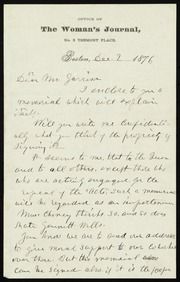 OFFICE OF
The Woman's Journal,
No. 3 TREMONT PLACE,
Boston, Dec. 2 1876
Dear Mr. Garrison
I enclose to you a
memorial which will explain
itself.
Will you write me confidentially
what you think of the propriety of
signing it.
It seems to me that to the Queen
and to all others, except those
who are actively engaged for the
repeal of the "Acts," such a memorial
will be regarded as an impertinence
Miss Cheney thinks so, and so does
Kate Gannett Wells.
You and we are to send our address
to give moral support to our
over there. But this memorial
can be signed also if it is the proper